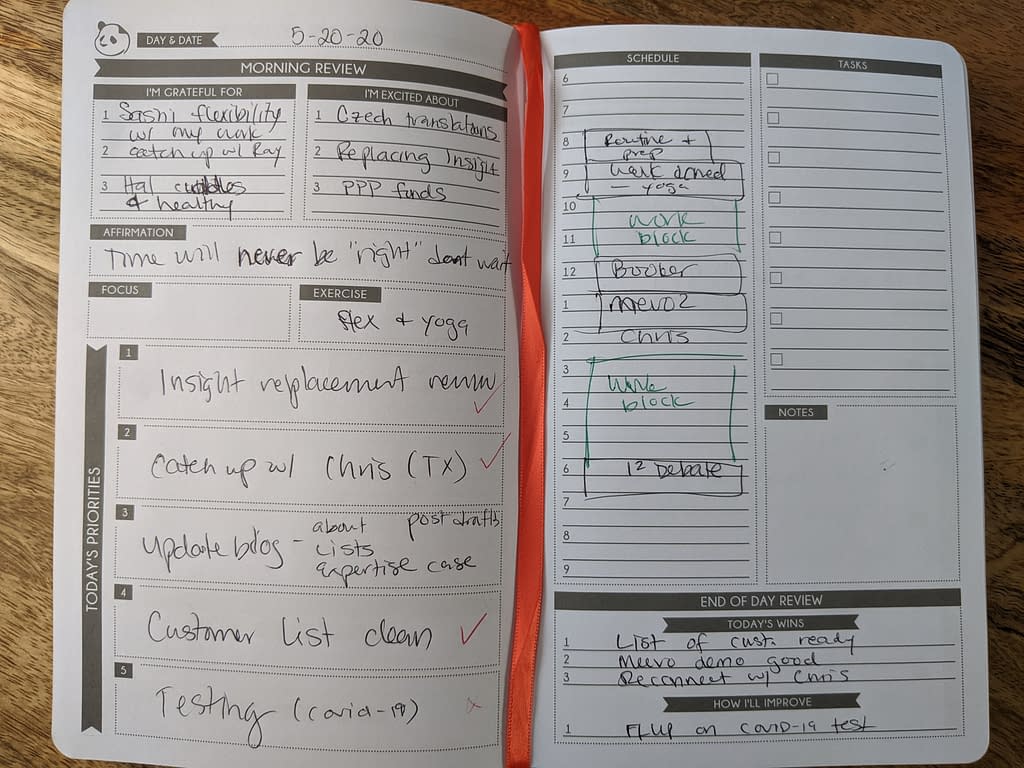 DAY & DATE 5-20-20
MORNING REVIEW
I'M GRATEFUL FOR
1 Sashi flexibility
w/ my work
2 catch up w/ Ray
3 Hal cuddles
& healthy
I'M EXCITED ABOUT
1 Czech translations
2 Replacing Insight
3 PPP funds
AFFIRMATION
Time will never be "right" dont wait
FOCUS
EXERCISE
flex + yoga
TODAY'S PRIORITIES
1
Insight replacement
2
Catch up w/ Chris (TX)
3
update blog - about post drafts
Lists
expertise case
4
Customer List clean
5
Testing (covid-19)
SCHEDULE
6
7
8 Routine +
prep
9
- yoga
10 work
11 block
12 Booker
1 mevo2
2 Chris
3 Work
4 block
5
6 12 Debate
7
8
9
TASKS
NOTES
END OF DAY REVIEW
TODAY'S WINS
1 List of cust. ready
2 Meevo demo good
3 Reconnect w/ Chris
HOW I'LL IMPROVE
1 FLUP on COVID-19 test